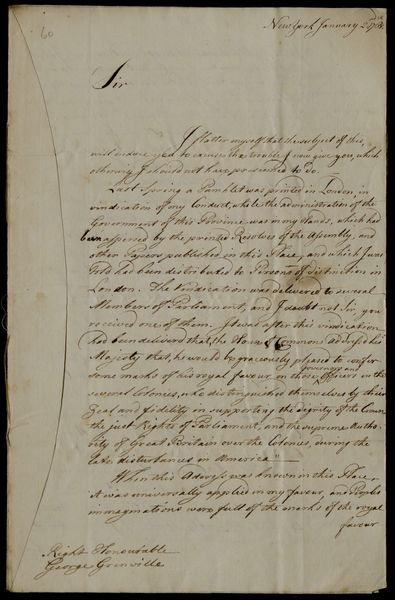 60
New York January 2d 1768.
Sir
I flatter myself that the subject of this,
will induce you to excuse the trouble I now give you, which
otherwise I should not have presumed to do.
Last Spring a Pamphlet was printed in London, in
vindication of my Conduct, while the administration of the
Government of this Province was in my Hands, which had
been aspersed by the printed Resolves of the Assembly, and
other Papers published in this Place, and which I was
told had been distributed to Persons of distinction in
London. The Vindication was delivered to several
Members of Parliament, and I doubt not Sir you
received one of them. It was after this vindication
had been delivered that the House of Commons address'd his
Majesty that he would be graciously pleased to confer
some marks of his royal favour on those Governors and Officers in the
several Colonies, who distinguished themselves by their
Zeal and fidelity in supporting the dignity of the Crown
the just Rights of Parliament, and the supreme Autho-
rity of Great Britain over the Colonies, during the
late disturbances in America"—
When this Address was known in this Place,
it was universally applied in my favour, and Peoples
immaginations were full of the marks of the royal
favour
Right Honourable
George Grenville